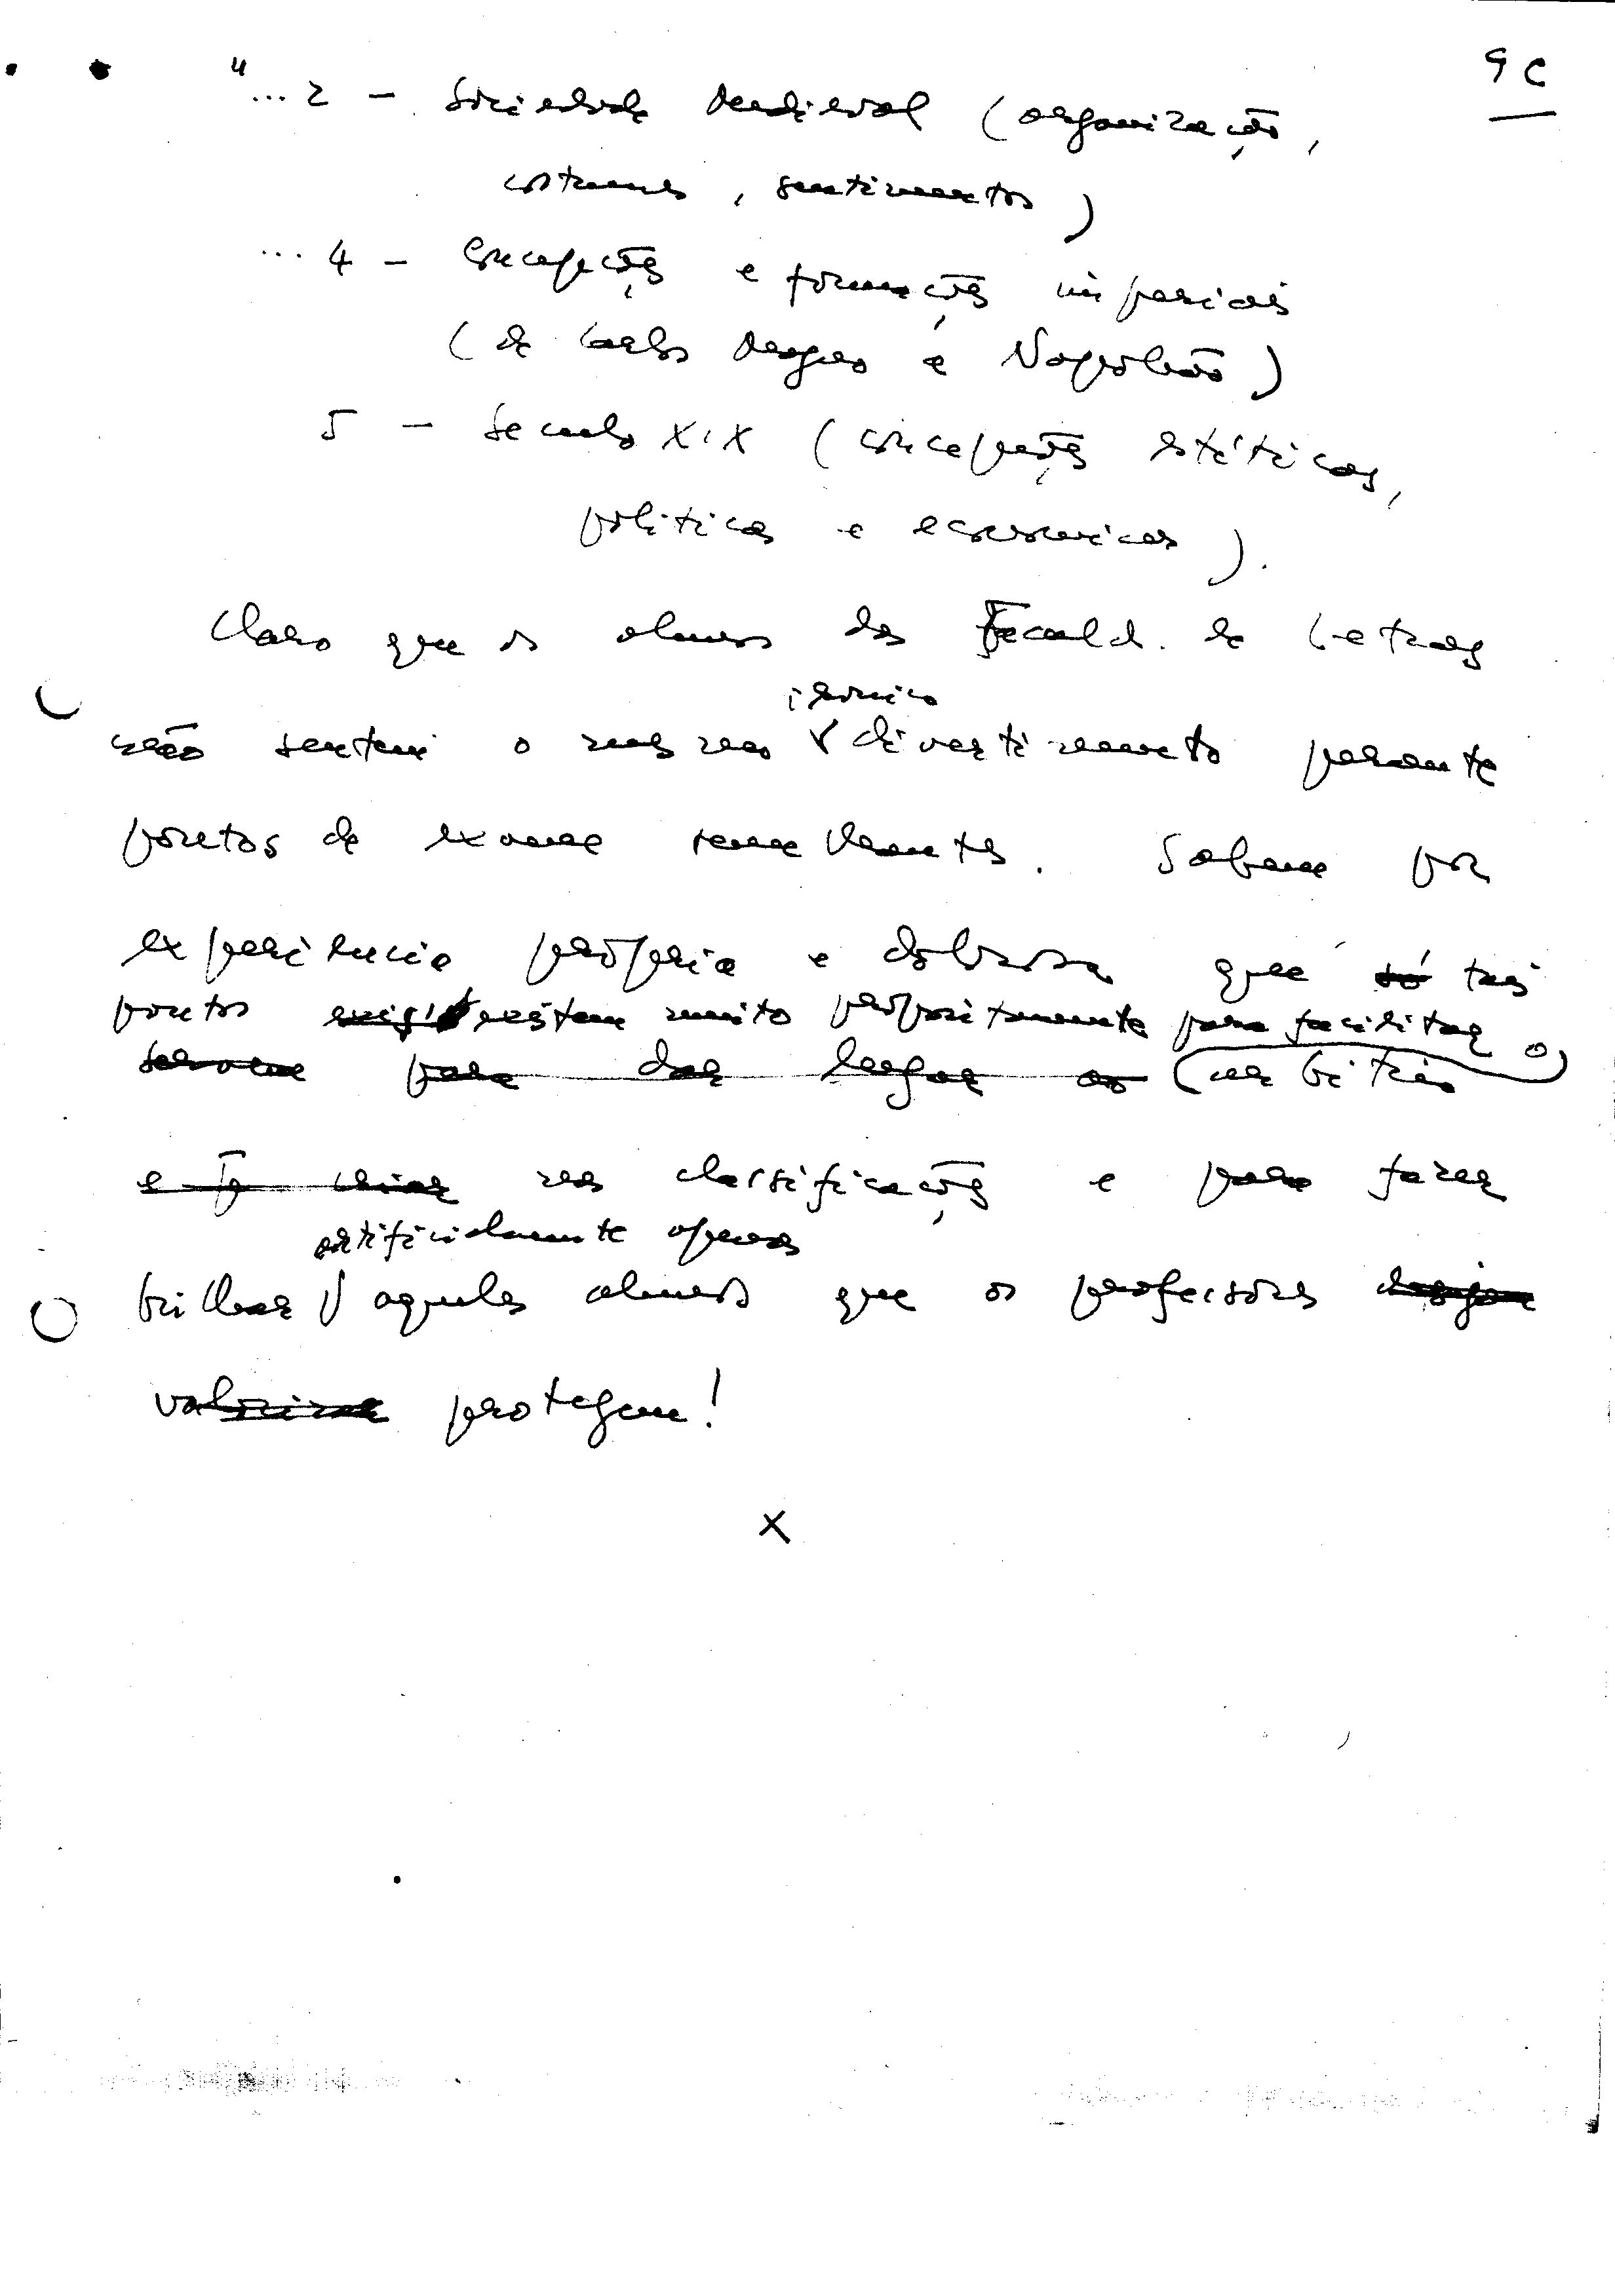 9C
"...2 - Sociedade Medieval (organização,
costumes, sentimentos)
...4 - Concepções e formações imperiais
(de Carlos Magno a Napoleão)
5 - Seculo XIX (concepções estéticas,
politicas e economicas).
Claro que os alunos das Facald. de Letras
irónico
não sentem o mesmo divertimento perante
pontos de exame semelhantes. Sabem por
experiência própria e dolorosa que só tais
pontos existem muito propositamente para facilitar o
servem para dar largas ao arbitrio
e nas classificações e para fazer
artificialmente apenas
brilhar aqueles alunos que os professores desejam
valorizar protegem!
X